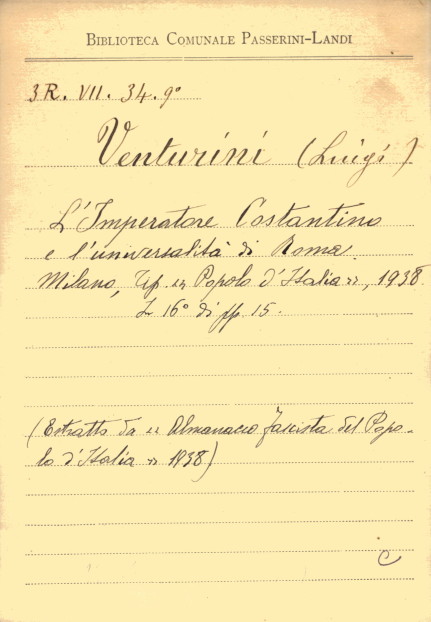 BIBLIOTECA COMUNALE PASSERINI-LANDI
3R. VII. 34. 9°
Venturini (Luigi)
L'Imperatore Costantino
e l'universalità di Roma.
Milano, Tip. « Popolo d'Italia », 1938.
In 16° di pp. 15.
(Estratto da « Almanacco fascista del Popo-
lo d'Italia » 1938)
C